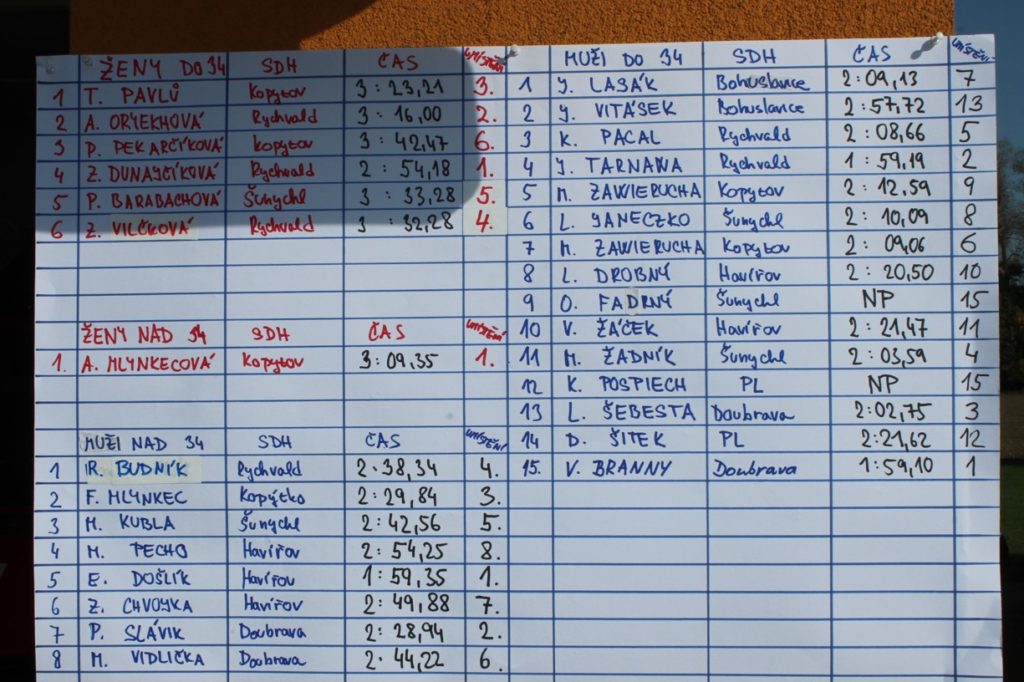 ŽENY DO 34 SDH ČAS UMÍSTĚNÍ
1 T. PAVLŮ Kopytov 3:23,21 3.
2 A. ORYEKHOVÁ Rychvald 3:16,00 2.
3 P. PEKARČÍKOVÁ Kopytov 3:42,47 6.
4 Z. DUNAJČÍKOVÁ Rychvald 2:54,18 1.
5 P. BARABACHOVÁ Šunychl 3:33,28 5.
6 Z. VILČKOVÁ Rychvald 3:32,28 4.
ŽENY NAD 34 SDH ČAS UMÍSTĚNÍ
1. A. MLYNKECOVÁ Kopytov 3:09,35 1.
MUŽI NAD 34 SDH ČAS UMÍSTĚNÍ
1 R. BUDNÍK Rychvald 2:38,34 4.
2 F. MLYNKEC Kopýtko 2:29,84 3.
3 M. KUBLA Šunychl 2:42,56 5.
4 M. PECHO Havířov 2:54,25 8.
5 E. DOŠLÍK Havířov 1:59,35 1.
6 Z. CHVOJKA Havířov 2:49,88 7.
7 P. SLÁVIK Doubrava 2:28,94 2.
8 M. VIDLIČKA Doubrava 2:44,22 6.
MUŽI DO 34 SDH ČAS UMÍSTĚNÍ
1 J. LASÁK Bohuslavice 2:09,13 7
2 J. VITÁSEK Bohuslavice 2:57,72 13
3 K. PACAL Rychvald 2:08,66 5
4 J. TARNAWA Rychvald 1:59,19 2
5 M. ZAWIERUCHA Kopytov 2:12,59 9
6 L. JANECZKO Šunychl 2:10,09 8
7 M. ZAWIERUCHA Kopytov 2:09,06 6
8 L. DROBNÝ Havířov 2:20,50 10
9 O. FADRNÝ Šunychl NP 15
10 V. ŽÁČEK Havířov 2:21,47 11
11 M. ŽADNÍK Šunychl 2:03,59 4
12 K. POSPIECH PL NP 15
13 L. ŠEBESTA Doubrava 2:02,75 3
14 D. ŠITEK PL 2:21,62 12
15. V. BRANNY Doubrava 1:59,10 1